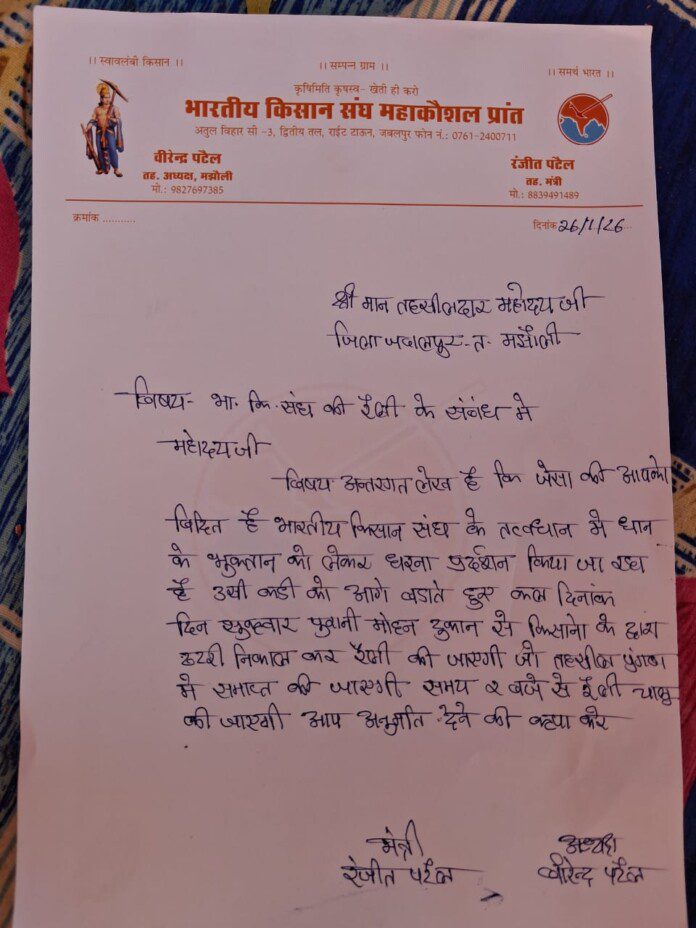 ।। स्वावलंबी किसान ।।
।। सम्पन्न ग्राम ।।
।। समर्थ भारत ।।
कृषिमिति कृषस्व- खेती ही करो
भारतीय किसान संघ महाकौशल प्रांत
अतुल विहार सी -3, द्वितीय तल, राईट टाऊन, जबलपुर फोन नं.: 0761-2400711
वीरेन्द्र पटैल
तह. अध्यक्ष, मझौली
मो.: 9827697385
रंजीत पटैल
तह. मंत्री
मो.: 8839491489
क्रमांक ...........
दिनांक 26/1/26
श्री मान तहसीलदार महोदय जी
जिला जबलपुर - त - मझौली
विषय - भा. कि. संघ की रैली के संबंध मे
महोदय जी
विषय अन्तरगत लेख है कि जेसा की आपको
विदित है भारतीय किसान संघ के तत्वधान मे धान
के भुक्तान को लेकर धरना प्रर्दशन किया जा रहा
है उसी कडी को आगे बडाते हुए कल दिनांक
दिन शुक्रवार पुरानी मोहन दुकान से किसानो के द्वारा
ठटरी निकाल कर रैली की जाएगी जो तहसील
मे समाप्त की जाएगी समय २ बजे से रैली चालु
की जाएगी आप अनुमति देने की कृपा करे
मंत्री
रंजीत पटैल
अध्यक्ष
वीरेन्द्र पटैल